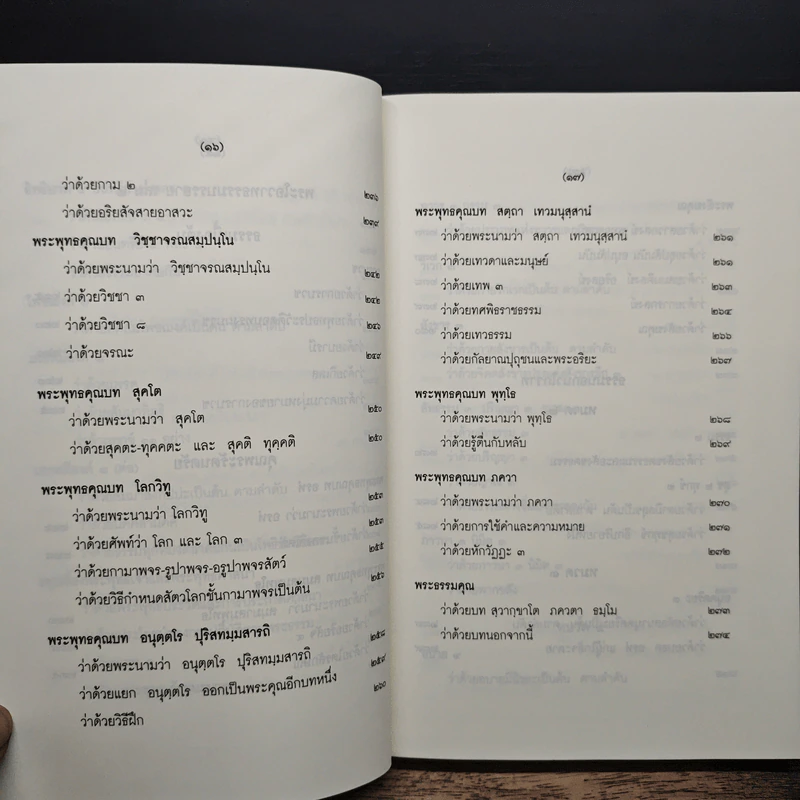 (๑๖)
ว่าด้วยกาม ๒ ๒๓๖
ว่าด้วยอริยสัจสายอาสวะ ๒๓๙
พระพุทธคุณบท วิชฺชาจรณสมฺปนฺโน
ว่าด้วยพระนามว่า วิชฺชาจรณสมฺปนฺโน ๒๔๒
ว่าด้วยวิชชา ๓ ๒๔๒
ว่าด้วยวิชชา ๘ ๒๔๖
ว่าด้วยจรณะ ๒๔๙
พระพุทธคุณบท สุคโต
ว่าด้วยพระนามว่า สุคโต ๒๕๐
ว่าด้วยสุคตะ-ทุคคตะ และ สุคติ ทุคฺคติ ๒๕๐
พระพุทธคุณบท โลกวิทู
ว่าด้วยพระนามว่า โลกวิทู ๒๕๓
ว่าด้วยศัพท์ว่า โลก และ โลก ๓ ๒๕๓
ว่าด้วยกามาพจร-รูปาพจร-อรูปาพจรสัตว์ ๒๕๕
ว่าด้วยวิธีกำหนดสัตวโลกชั้นกามาพจรเป็นต้น ๒๕๖
พระพุทธคุณบท อนุตฺตโร ปุริสทมฺมสารถิ
ว่าด้วยพระนามว่า อนุตฺตโร ปุริสทมฺมสารถิ ๒๕๘
ว่าด้วยแยก อนุตฺตโร ออกเป็นพระคุณอีกบทหนึ่ง ๒๕๙
ว่าด้วยวิธีฝึก ๒๖๐
(๑๗)
พระพุทธคุณบท สตฺถา เทวมนุสฺสานํ
ว่าด้วยพระนามว่า สตฺถา เทวมนุสฺสานํ ๒๖๑
ว่าด้วยเทวดาและมนุษย์ ๒๖๑
ว่าด้วยเทพ ๓ ๒๖๓
ว่าด้วยทศพิธราชธรรม ๒๖๔
ว่าด้วยเทวธรรม ๒๖๖
ว่าด้วยกัลยาณปุถุชนและพระอริยะ ๒๖๗
พระพุทธคุณบท พุทฺโธ
ว่าด้วยพระนามว่า พุทฺโธ ๒๖๘
ว่าด้วยรู้ตื่นกับหลับ ๒๖๙
พระพุทธคุณบท ภควา
ว่าด้วยพระนามว่า ภควา ๒๗๐
ว่าด้วยการใช้คำและความหมาย ๒๗๑
ว่าด้วยหักวัฏฏะ ๓ ๒๗๒
พระธรรมคุณ
ว่าด้วยบท สฺวากฺขาโต ภควตา ธมฺโม ๒๗๓
ว่าด้วยบทนอกจากนี้ ๒๗๔